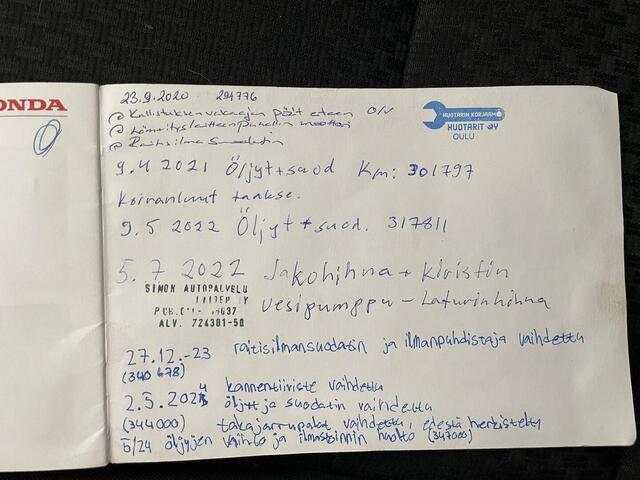 HONDA
23.9.2020 294776
Kallistuksenvakaajan päät eteen O/V
Lämmityslaitteenpuhallin moottori
Raitisilmasuodatin
HUOTARIN KORJAAMO
HUOTARIT OY
OULU
9.4 2021 Öljyt+suod Km: 301797
Koiranluut taakse.
9.5 2022 Öljyt + suod. 317811
5.7 2022 Jakohihna + Kiristin
SIMON AUTOPALVELU
Vesipumppu - Laturinhihna
ALV. 724301-50
27.12.-23 raitisilmansuodatin ja ilmanpuhdistaja vaihdettu
(340 678)
kannentiiviste vaihdettu
2.5.2024 öljyt ja suodatin vaihdettu
(344000) takajarrupalat vaihdettu, edestä herkistelty
5/24 öljyjen vaihto ja ilmastoinnin huolto (347000)